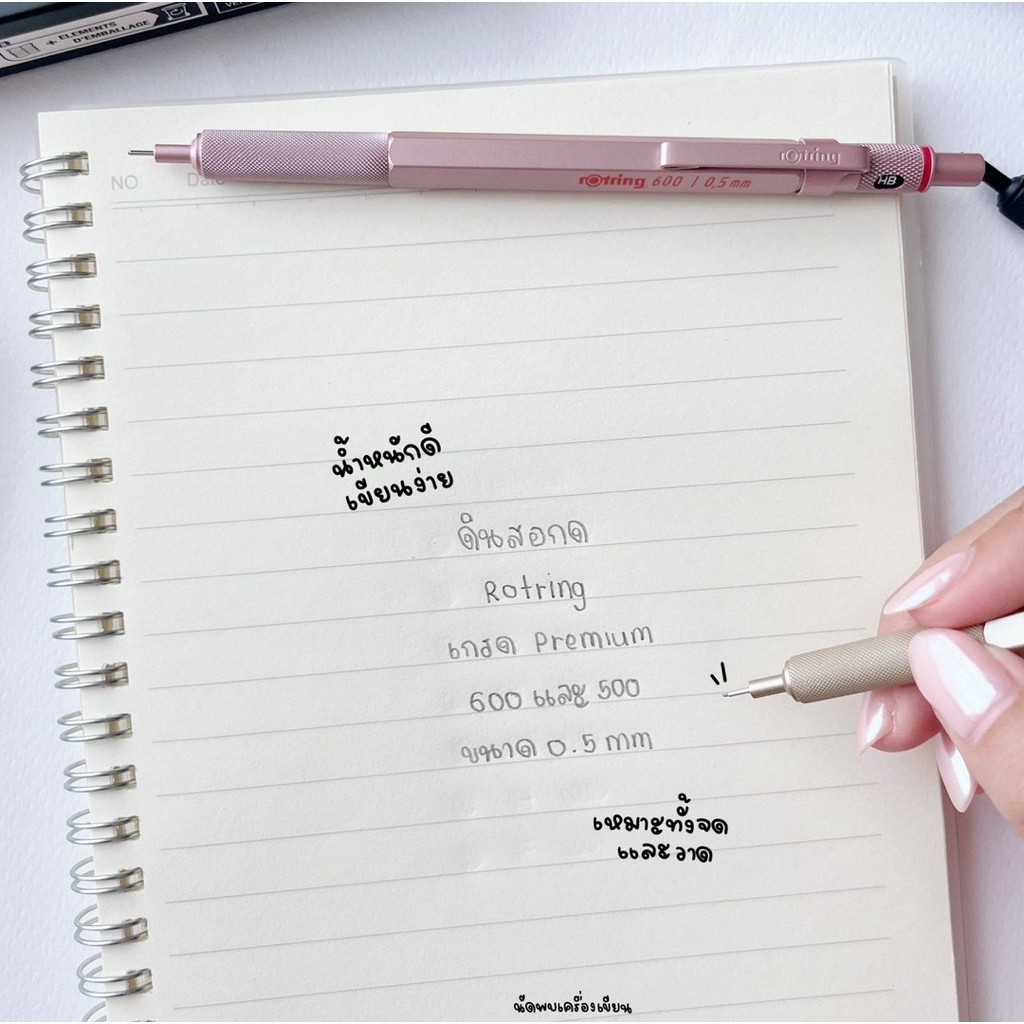 + ELEMENTS
D'EMBALLAGE
NO Date
rOtring
rOtring 600 / 0,5mm
HB
น้ำหนักดี
เขียนง่าย
ดินสอกด
Rotring
เกรด Premium
600 และ 500
ขนาด 0.5 mm
เหมาะทั้งจด
และวาด
นัดพบเครื่องเขียน